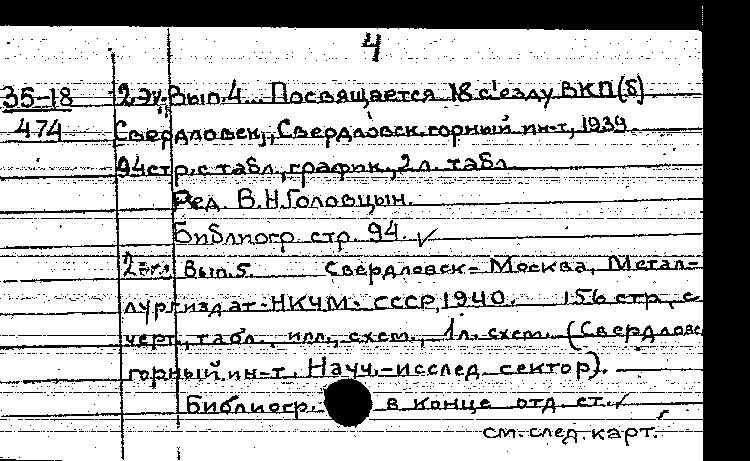 4
35-18 2 эк. Вып.4... Посвящается 18 с'езду ВКП(б)
474 Свердловск, Свердловск.горный ин-т, 1939.
94стр.с табл., график., 2 л. табл.
Ред. В.Н.Головцын.
Библиогр. стр. 94. ✓
2 эк. Вып.5. Свердловск-Москва, Метал-
лургиздат-НКЧМ-СССР, 1940. 156 стр., с
черт., табл., илл., схем., 1л. схем. (Свердловс
горный.ин-т. Науч.-исслед. сектор).
Библиогр. в конце отд. ст. ✓
см.след.карт.